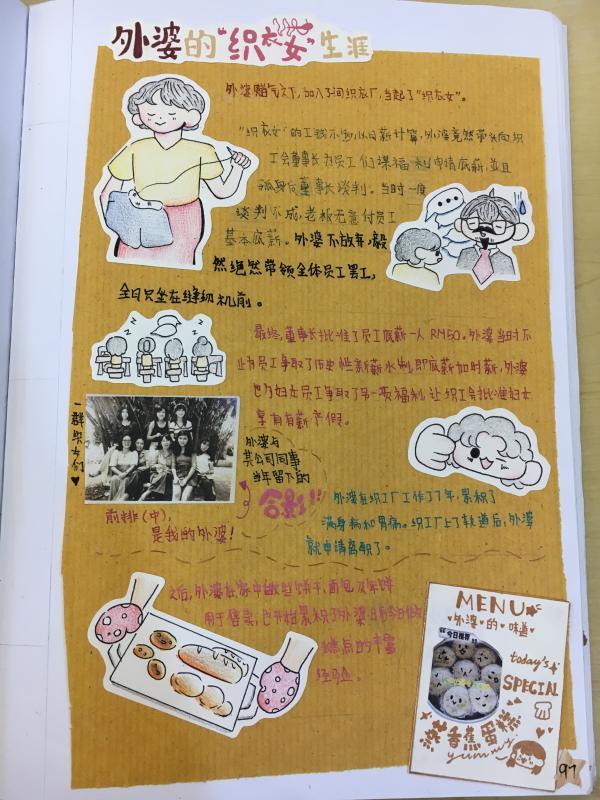 外婆的“织衣女”生涯
外婆赌气之下,加入了间织衣厂,当起了“织衣女”。
“织衣女”的工钱不多,以日薪计算,外婆竟然带头向织
工会董事长为员工们谋福利申请底薪,並且
孤身向董事长谈判。当时一度
谈判不成,老板无意付员工
基本底薪。外婆不放弃,毅
然绝然带领全体员工罢工,
全日只坐在缝纫机前。
最终,董事长批准了员工底薪一人RM50。外婆当时不
止为员工争取了历史性新薪水制,即底薪加时薪,外婆
也为妇女员工争取了另一项福利,让织工会批准妇女
享有有薪产假。
一群织女们♥
外婆与
其公司同事
当年留下的
合影!!
前排(中),
是我的外婆!
外婆在织工厂工作了7年,累积了
满身病和胃痛。织工厂上了轨道后,外婆
就申请离职了。
之后,外婆在家中做些饼干,面包及年饼
用于售卖,也开始累积了外婆日后今日做
糕点的丰富
经验。
MENU
外婆的味道
“今日推荐”
today's
SPECIAL
蒸香蕉蛋糕
yummy
97